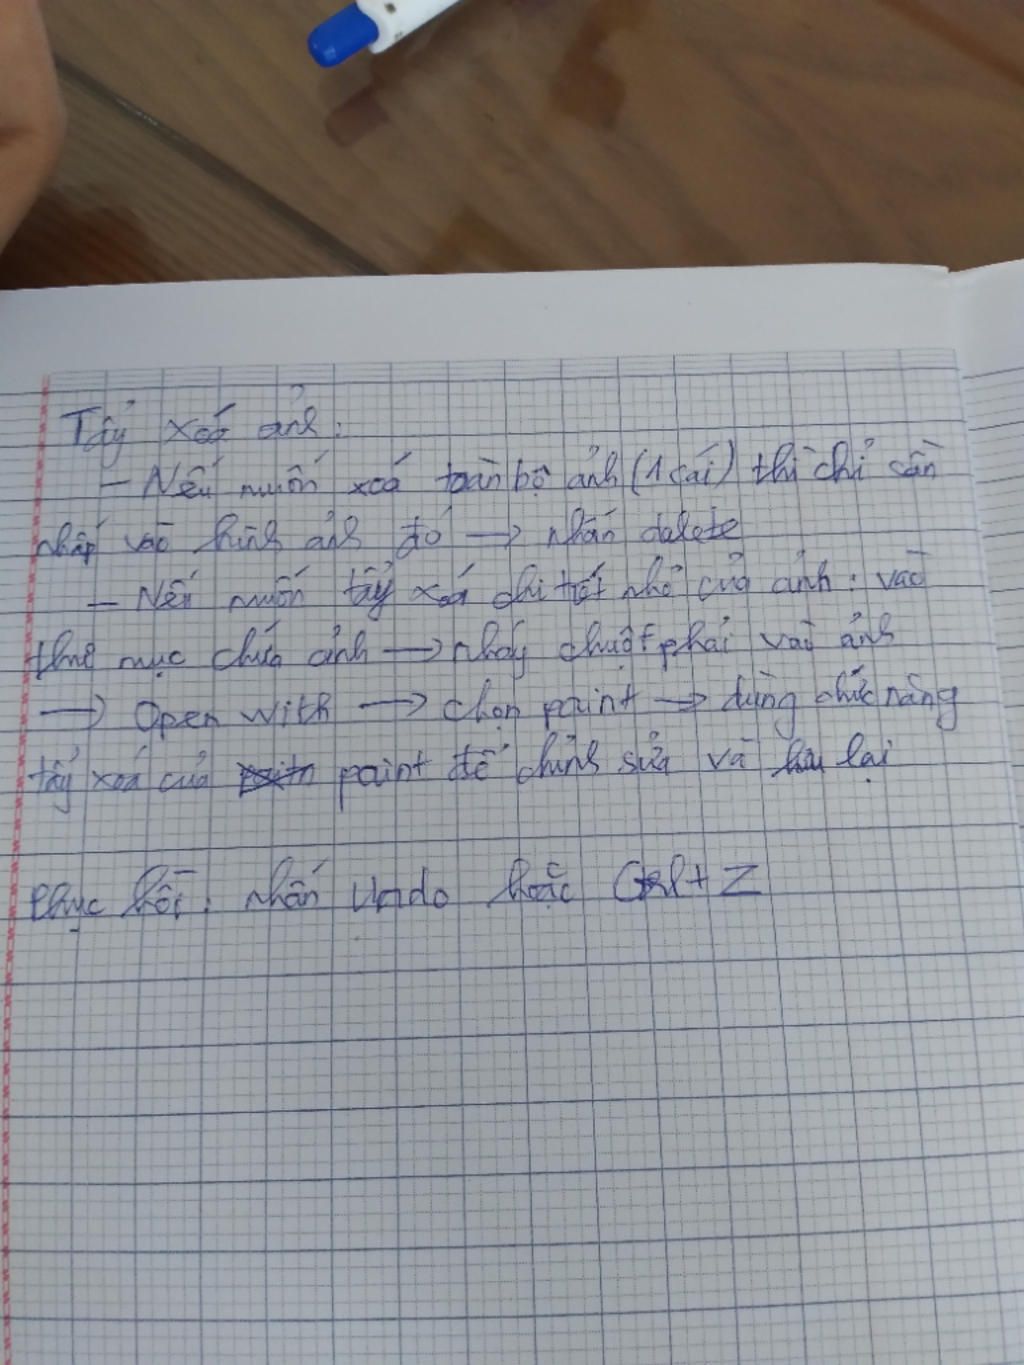 Tẩy xoá ảnh:
- Nếu muốn xoá toàn bộ ảnh (1 cái) thì chỉ cần
nhấp vào hình ảnh đó → nhấn dalete
- Nếu muốn tẩy xoá chi tiết nhỏ của ảnh: vào
thư mục chứa ảnh → nháy chuột phải vào ảnh
→ Open with → chọn paint → dùng chức năng
tẩy xoá của paint để chỉnh sửa và lưu lại
Phục hồi: nhấn Undo hoặc Ctrl + Z